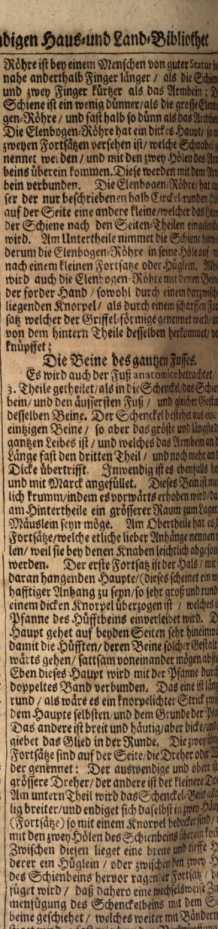 digen Haus-und Land-Bibliothet
Röhre ist bey einem Menschen von guter Statur
nahe anderthalb Finger länger / als die Schien
und zwey Finger kürtzer als das Armbein: D
Schiene ist ein wenig dünner/als die grosse Elen
gen-Röhre / und fast halb so dünn als das Armbei
Die Elenbogen-Röhre hat ein dickes Haupt/
zweyen Fortsätzen versehen ist/ welche
nennet werden / und mit den zwey Hölen des Ar
beins überein kommen. Diese werden mit dem Arm
bein verbunden. Die Elenbogen-Röhre hat
ser der nur beschriebenen halb Circkel-runden
auf der Seite eine andere kleine/welcher das
der Schiene nach den Seiten-Theilen
wird. Am Untertheile nimmet die Schiene
derum die Elenbogen-Röhre in seine Höle auf
nach einem kleinen Fortsatze oder Hüglein.
wird auch die Elenbogen-Röhre mit denen Bein
der forder Hand / sowohl durch einen darzwisch
liegenden Knorpel / als durch einen scharffen
satz welcher der Griffel-förmige genennet
von dem hintern Theile desselben herkommet/
knüpffet:
Die Beine des gantzen Fusses.
Es wird auch der Fuß anatomice betrachtet/
3. Theile getheilet/als in die Schenckel/das Schie
bein/und den äussersten Fuß / und
desselben Beine. Der Schenckel bestehet aus
eintzigen Beine / so aber das gröste und
gantzen Leibes ist / und welches das Armbein an
Länge fast den dritten Theil / und noch mehr an
Dicke übertrifft. Inwendig ist es ebenfalls
und mit Marck angefüllet. Dieses Bein ist
lich krumm/indem es vorwärts erhoben wird/
am Hintertheile ein grösserer Raum zum Lager
Mäuslein seyn möge. Am Obertheile hat es
Fortsätze/welche etliche lieber Anhänge nennen
len/ weil sie bey denen Knaben leichtlich
werden. Der erste Fortsatz ist der Hals / mit
daran hangenden Haupte/(dieses scheinet ein
hafftiger Anhang zu seyn/so sehr groß und rund
einem dicken Knorpel überzogen ist / welches
Pfanne des Hüfftbeins einverleibet wird. D
Haupt gehet auf beyden Seiten sehr hinein
damit die Hüfften/ deren Beine solcher Gestalt
wärts gehen / sattsam voneinander mögen
Eben dieses Haupt wird mit der Pfanne durch
doppeltes Band verbunden. Das eine ist
rund / als wäre es ein knorpelichter Strick
dem Haupte selbsten/ und dem Grunde der Pfa
Das andere ist breit und häutig/aber dick/
giebet das Glied in der Runde. Die zwey
Fortsätze sind auf der Seite/ die Dreher oder
der genennet: Der auswendige und
grössere Dreher/ der andere ist der kleinere D
Am untern Theil wird das Schenckel-Bein
lig breiter/und endiget sich daselbst in zwey
(Fortsätze) so mit einem Knorpel bedecket sind/
mit den zwey Hölen des Schienbeins überein
Zwischen diesen lieget eine breite und tieffe H
derer ein Hüglein / oder zwischen den zwey
des Schienbeins hervor ragender Fortsatz /
füget wird / daß dahero eine wechselsweise Zu
menfügung des Schenckelbeins mit dem S
beine geschiehet / welches weiter mit Bändern